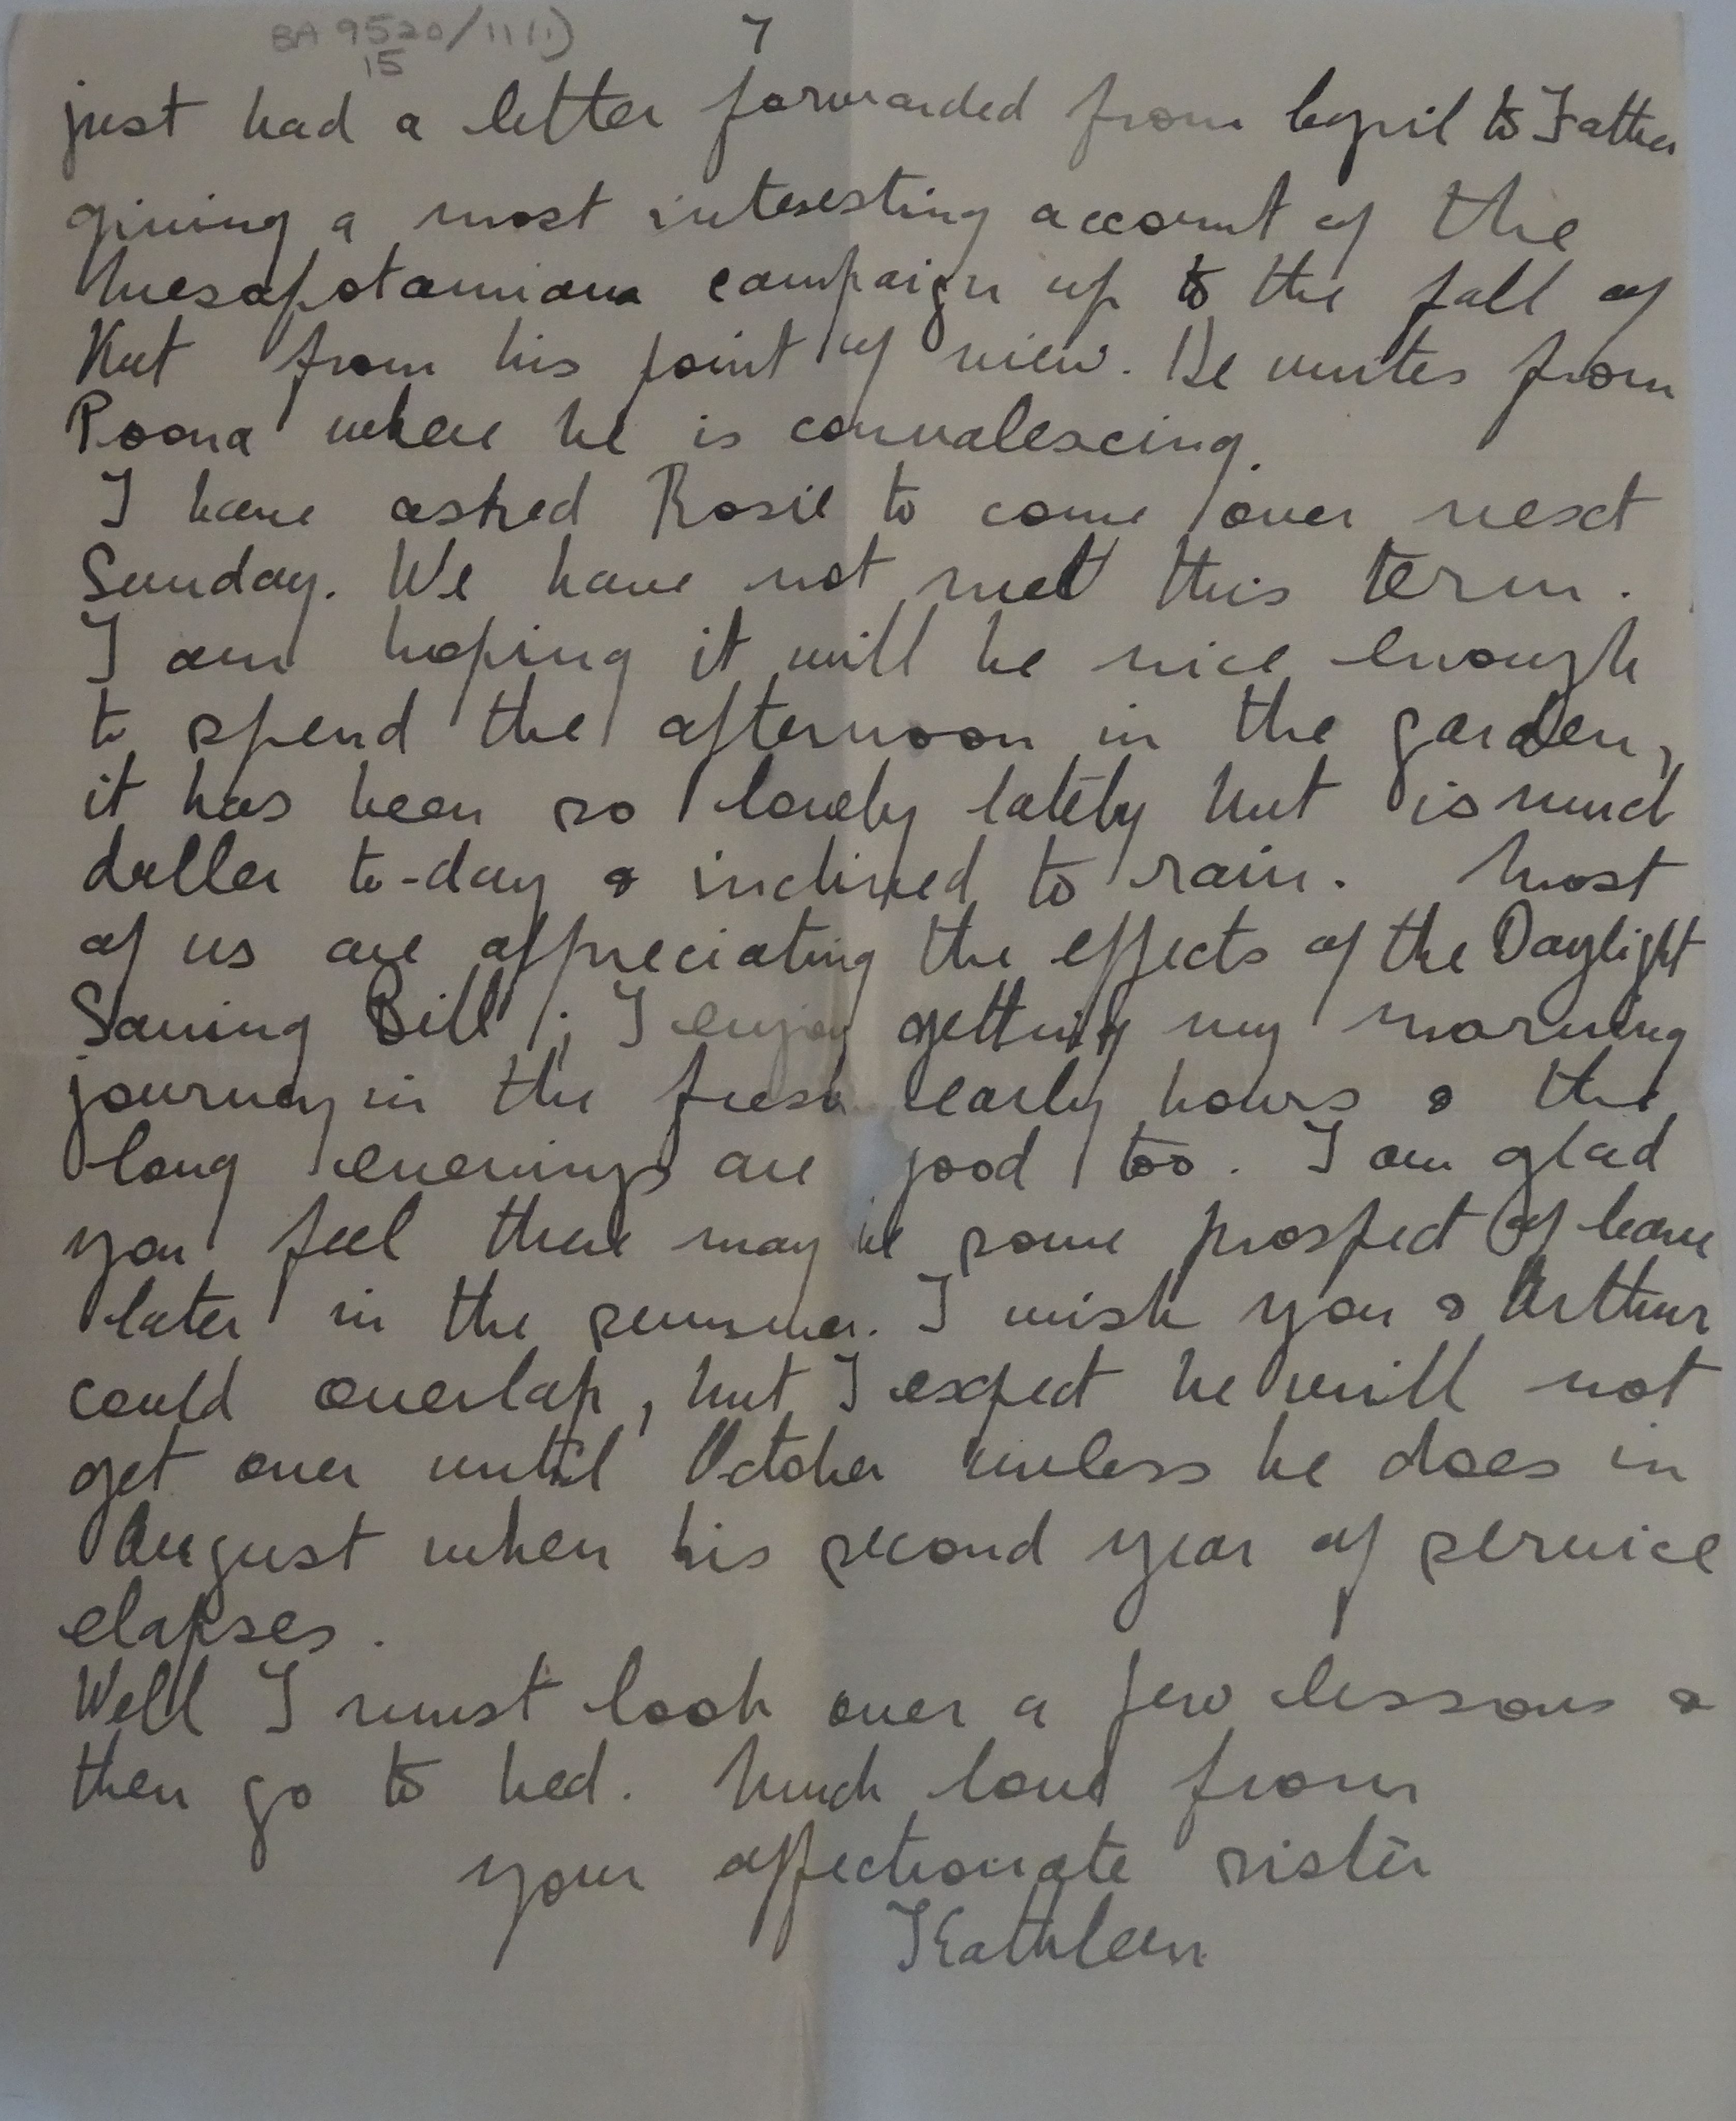 BA 9520/11(1)
15
7
just had a letter forwarded from Cyril to Father
giving a most interesting account of the
Mesopotamian campaign up to the fall of
Kut from his point of view. He writes from
Poona where he is convalescing.
I have asked Rosie to come over next
Sunday. We have not met this term.
I am hoping it will be nice enough
to spend the afternoon in the garden,
it has been so lovely lately but is much
duller to-day & inclined to rain. Most
of us are appreciating the effects of the Daylight
Saving Bill; I enjoy getting my morning
journey in the fresh early hours & the
long evenings are good too. I am glad
you feel there may be some prospect of leave
later in the summer. I wish you & Arthur
could overlap, but I expect he will not
get over until October unless he does in
August when his second year of service
elapses.
Well I must look over a few lessons &
then go to bed. Much love from
your affectionate sister
Kathleen